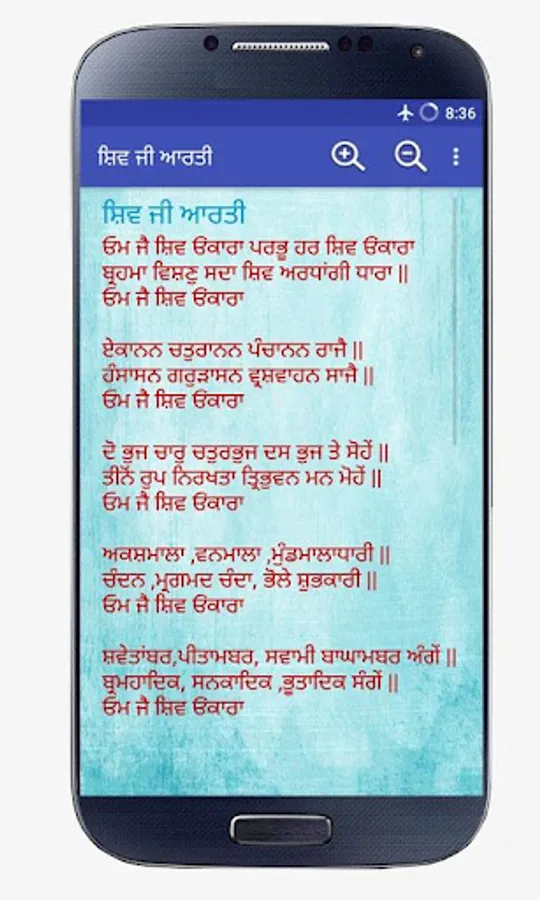 8:36
ਸ਼ਿਵ ਜੀ ਆਰਤੀ
ਸ਼ਿਵ ਜੀ ਆਰਤੀ
ਓਮ ਜੈ ਸ਼ਿਵ ਓਂਕਾਰਾ ਪਰਭੂ ਹਰ ਸ਼ਿਵ ਓਂਕਾਰਾ
ਬ੍ਰਹਮਾ ਵਿਸ਼ਣੁ ਸਦਾ ਸ਼ਿਵ ਅਰਧਾਂਗੀ ਧਾਰਾ ||
ਓਮ ਜੈ ਸ਼ਿਵ ਓਂਕਾਰਾ
ਏਕਾਨਨ ਚਤੁਰਾਨਨ ਪੰਚਾਨਨ ਰਾਜੈ ||
ਹੰਸਾਸਨ ਗਰੁੜਾਸਨ ਵ੍ਰਸ਼ਵਾਹਨ ਸਾਜੈ ||
ਓਮ ਜੈ ਸ਼ਿਵ ਓਂਕਾਰਾ
ਦੋ ਭੁਜ ਚਾਰੁ ਚਤੁਰਭੁਜ ਦਸ ਭੁਜ ਤੇ ਸੋਹੇਂ ||
ਤੀਨੋਂ ਰੁਪ ਨਿਰਖਤਾ ਤ੍ਰਿਭੁਵਨ ਮਨ ਮੋਹੇਂ ||
ਓਮ ਜੈ ਸ਼ਿਵ ਓਂਕਾਰਾ
ਅਕਸ਼ਮਾਲਾ ,ਵਨਮਾਲਾ ,ਮੁੰਡਮਾਲਾਧਾਰੀ ||
ਚੰਦਨ ,ਮ੍ਰਗਮਦ ਚੰਦਾ, ਭੋਲੇ ਸ਼ੁਭਕਾਰੀ ||
ਓਮ ਜੈ ਸ਼ਿਵ ਓਂਕਾਰਾ
ਸ਼ਵੇਤਾਂਬਰ,ਪੀਤਾਮਬਰ, ਸਵਾਮੀ ਬਾਘਾਮਬਰ ਅੰਗੇਂ ||
ਬ੍ਰਮਹਾਦਿਕ, ਸਨਕਾਦਿਕ ,ਭੂਤਾਦਿਕ ਸੰਗੇਂ ||
ਓਮ ਜੈ ਸ਼ਿਵ ਓਂਕਾਰਾ